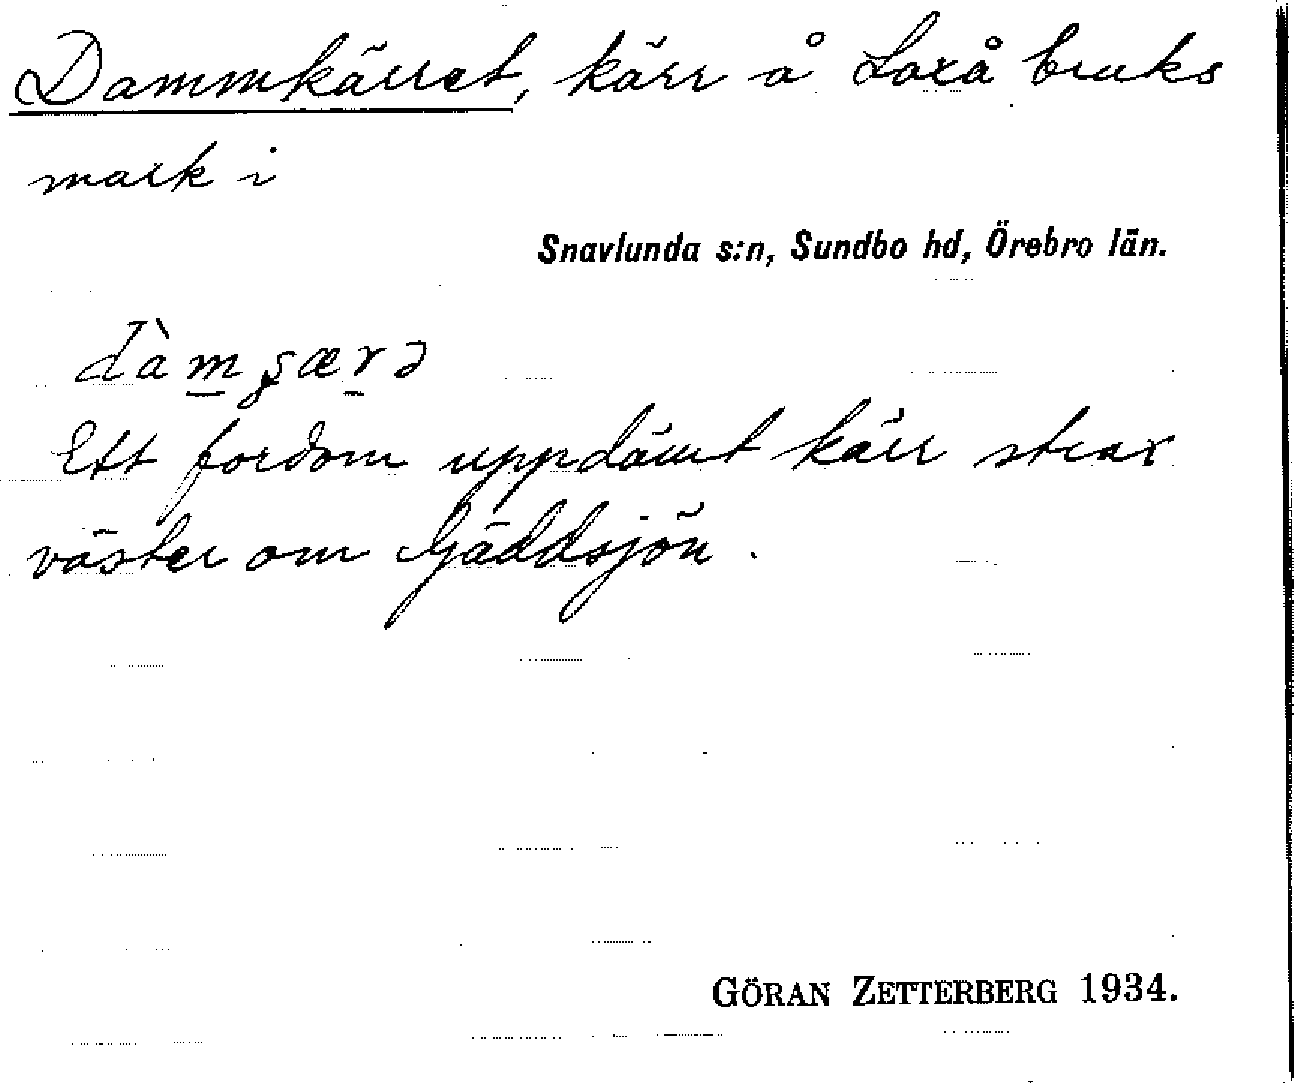 Dammkärret, kärr å Laxå bruks
mark i
Snavlunda s:n, Sundbo hd, Örebro län.
dàm̲ʂær̲ə
Ett fordom uppdämt kärr strax
väster om Gäddsjön.
GÖRAN ZETTERBERG 1934.